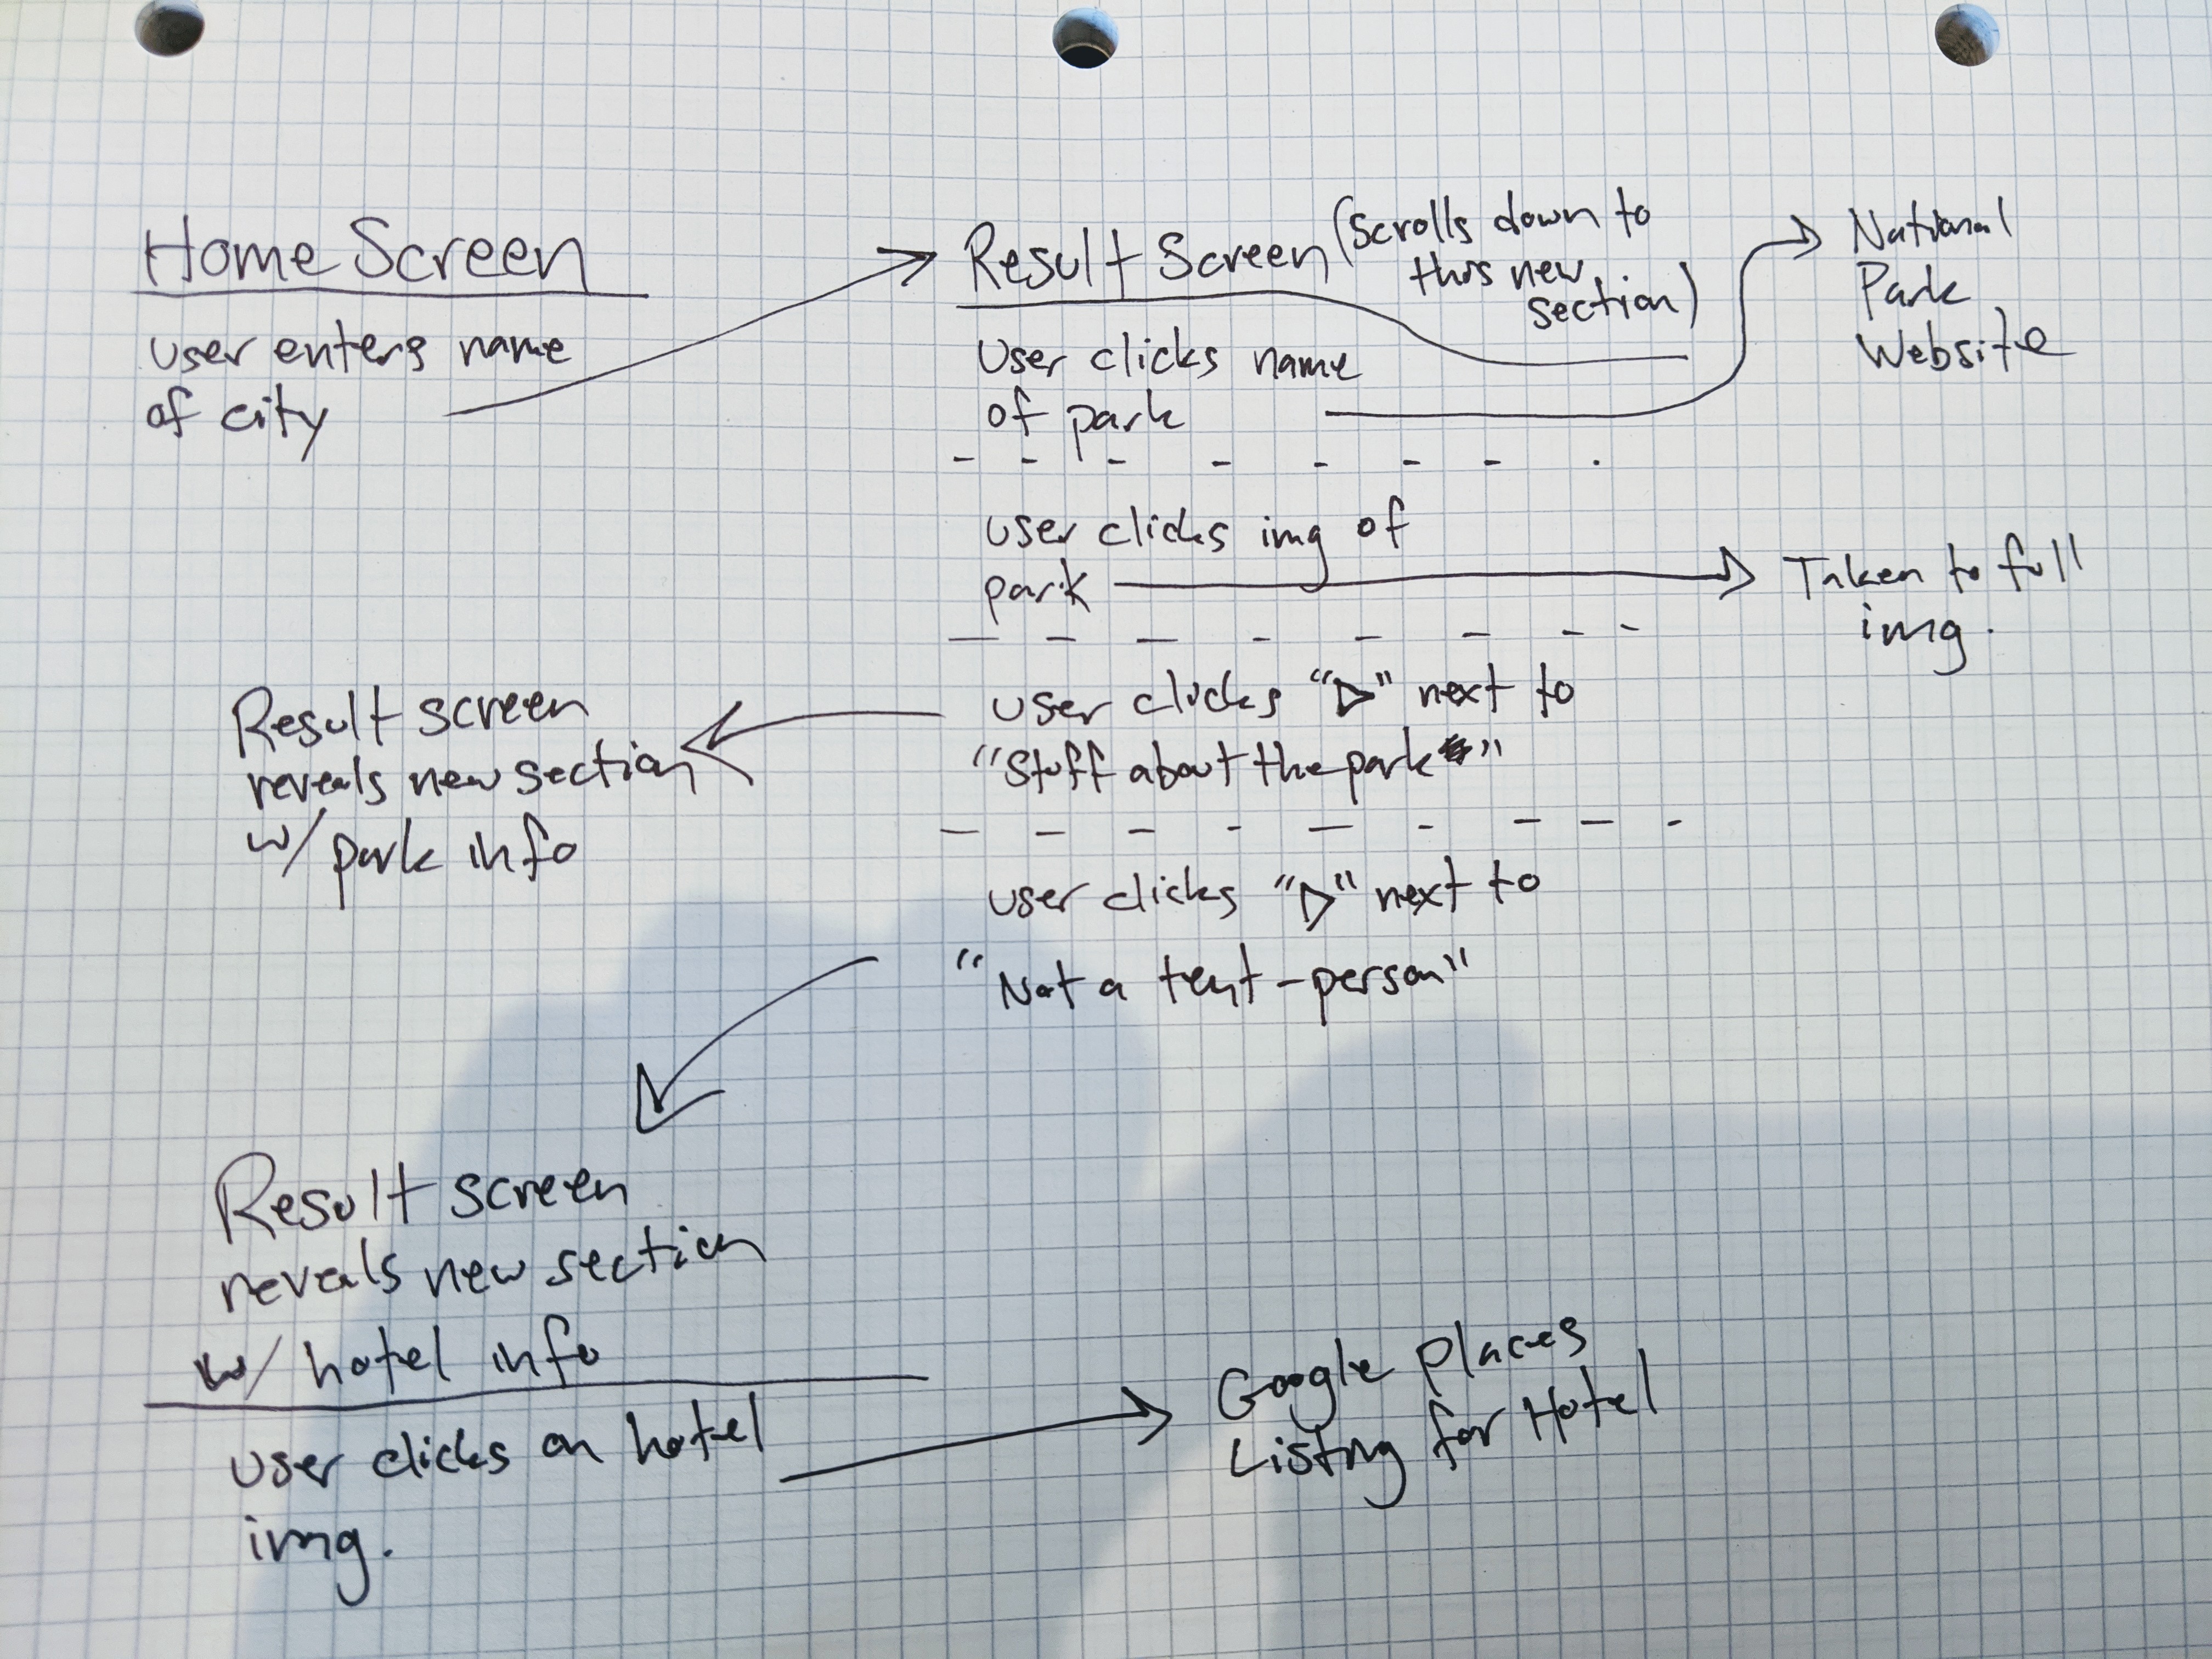 Home Screen
user enters name
of city
Result Screen (scrolls down to
this new
section)
User clicks name
of park
National
Park
Website
user clicks img of
park
Taken to full
img.
user clicks "▷" next to
"Stuff about the park"
Result screen
reveals new section
w/ park info
user clicks "▷" next to
"Not a tent-person"
Result screen
reveals new section
w/ hotel info
user clicks on hotel
img.
Google Places
Listing for Hotel